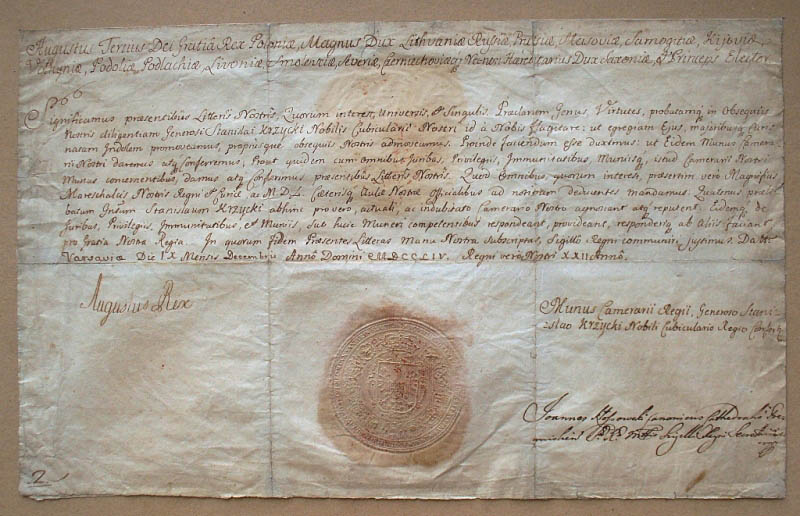 Augustus Tertius Dei Gratiâ Rex Poloniæ, Magnus Dux Lithvaniæ Russiæ, Prussiæ, Masoviæ, Samogitiæ, Kijoviæ,
Volhyniæ, Podoliæ, Podlachiæ, Livoniæ, Smolensciæ, Severiæ, Czerniechoviæq; Necnon Hæreditarius Dux Saxoniæ, & Princeps Elector.
Significamus præsentibus Litteris Nostris, Quorum interest, Universis, & Singulis. Præclarum Genus, Virtutes, probatamq; in Obsequiis
Nostris diligentiam Generosi Stanislai Krzycki Nobilis Cubicularii Nostri id à Nobis flagitare: ut egregiam Ejus, majoribusq; Curis
natam Indolem promoveamus, propiusque obsequiis Nostris admoveamus. Proinde faciendum esse duximus: ut Eidem Munus Camera-
rii Nostri Daremus atq; Conferremus, Prout quidem cum omnibus Juribus, Privilegiis, Immunitatibus, Muniisq; istud Camerarii Nostri
Munus concernentibus, Damus atq; Conferimus præsentibus Litteris Nostris. Quod Omnibus, quorum interest, præsertim vero Magnificis
Mareschalis Nostris Regni & Curiæ ac M.D.L. Cæterisq; Aulæ Nostræ Officialibus ad notitiam deducentes mandamus. Quatenus præli-
batum Stanislaum Krzycki abhinc pro vero, actuali, ac indubitato Camerario Nostro agnoscant atq; reputent, Eidemq; de
Juribus, Privilegiis, Immunitatibus, & Muniis, sub huic Muneri competentibus respondeant, provideant, responderiq; ab Aliis faciant,
pro Gratia Nostra Regia. In quorum fidem Præsentes Litteras Manu Nostra Subscriptas, Sigillo Regni communiri jussimus. Datt:
Varsaviæ Die IX Mensis Decembris Anno Domini MDCCLIV. Regni vero Nostri XXII Anno.
Augustus Rex
Munus Camerarii Regii, Generoso Stani-
slao Krzycki Nobili Cubiculario Regio Confertur
Joannes Canonicus Cathedralis
Sigilli Regni Secretarius
2